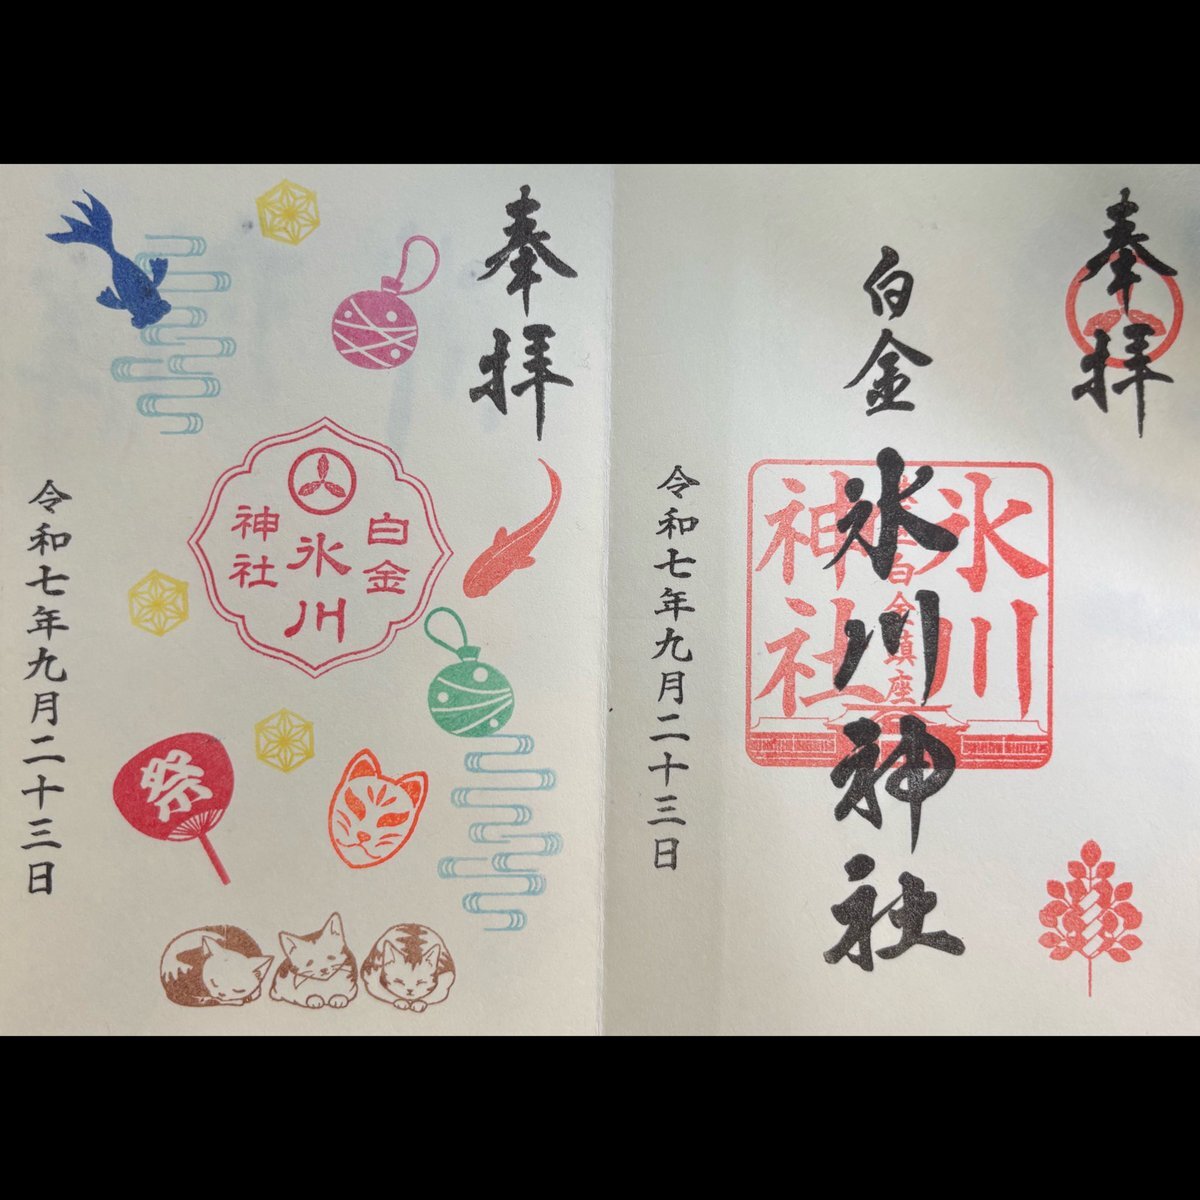 奉拝
白金
氷川神社
氷川
白金鎮座
神社
令和七年九月二十三日
奉拝
白金
氷川
神社
祭
令和七年九月二十三日